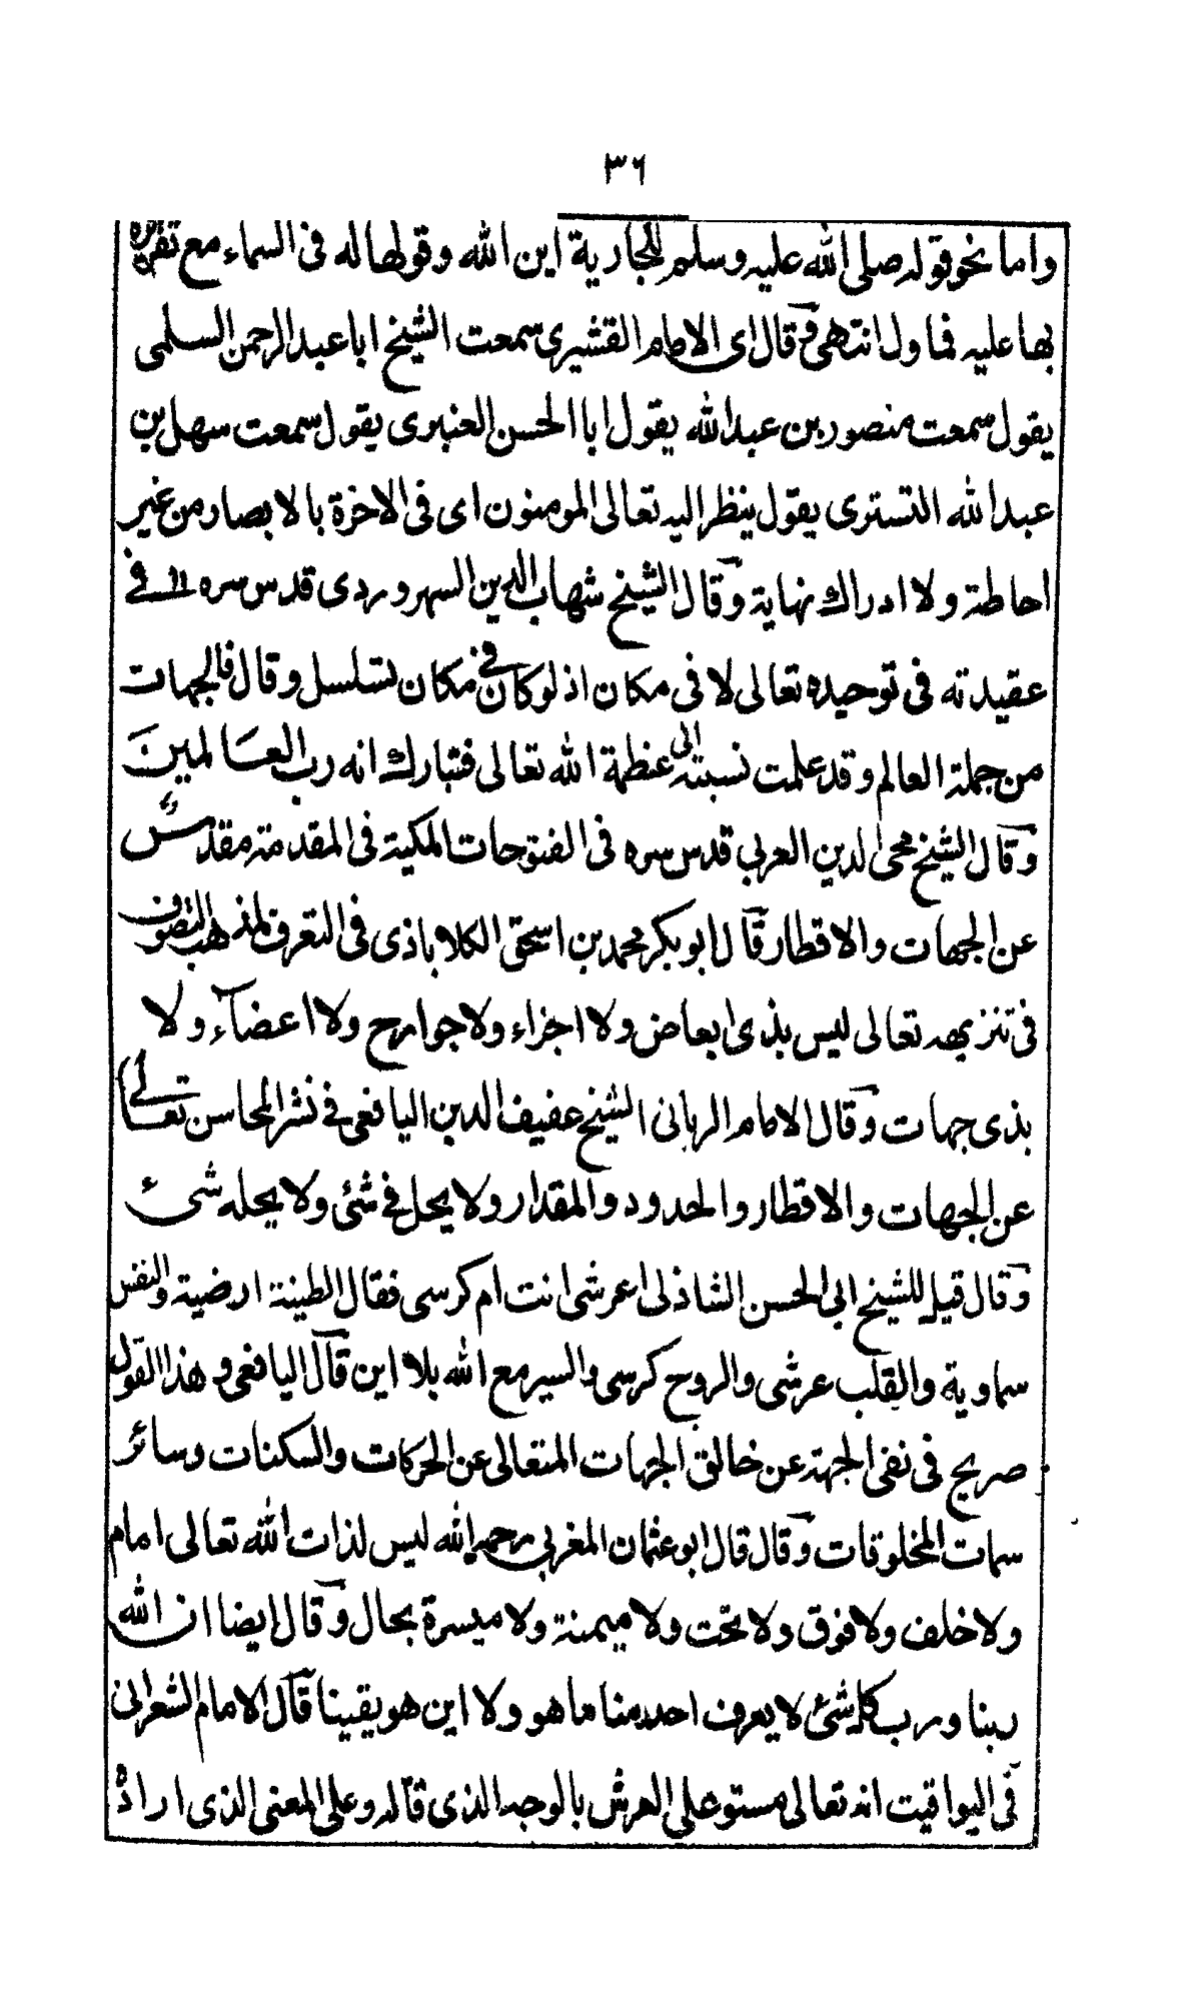 ٣٦
واما نحو قوله صلى الله عليه وسلم للجارية اين الله وقولها له فى السماء مع تقريره
بها عليه فماول انتهى وقال اى الامام القشيرى سمعت الشيخ ابا عبد الرحمن السلمى
يقول سمعت منصور بن عبد الله يقول ابا الحسن العنبرى يقول سمعت سهل بن
عبد الله التسترى يقول ينظر اليه تعالى المومنون اى فى الاخرة بالابصار من غير
احاطة ولا ادراك نهاية وقال الشيخ شهاب الدين السهروردى قدس سره فى
عقيدته فى توحيده تعالى لا فى مكان اذ لو كان فى مكان تسلسل وقال فالجهات
من جملة العالم وقد علمت نسبته الى عظمة الله تعالى فتبارك انه رب العالمين
وقال الشيخ محى الدين العربى قدس سره فى الفتوحات المكية فى المقدمة مقدس
عن الجهات والاقطار قال ابو بكر محمد بن اسحق الكلاباذى فى التعرف لمذهب التصوف
فى تنزيهه تعالى ليس بذى ابعاض ولا اجزاء ولا جوارح ولا اعضآء ولا
بذى جهات وقال الامام الربانى الشيخ عفيف الدين اليافعى فى نشر المحاسن تعالى
عن الجهات والاقطار والحدود والمقدار ولا يحل فى شئ ولا يحله شئ
وقال قيل للشيخ ابى الحسن الشاذلى اعرشى انت ام كرسى فقال الطينة ارضية والنفس
سماوية والقلب عرشى والروح كرسى والسير مع الله بلا اين قال اليافعى وهذا القول
صريح فى نفى الجهة عن خالق الجهات المتعالى عن الحركات والسكنات وسائر
سمات المخلوقات وقال قال ابو عثمان المغربى رحمه الله ليس لذات الله تعالى امام
ولا خلف ولا فوق ولا تحت ولا ميمنة ولا ميسرة بحال وقال ايضا ان الله
ربنا ورب كل شئ لا يعرف احد منا ما هو ولا اين هو يقينا قال الامام الشعرانى
فى اليواقيت انه تعالى مستو على العرش بالوجه الذى قاله وعلى المعنى الذى اراده